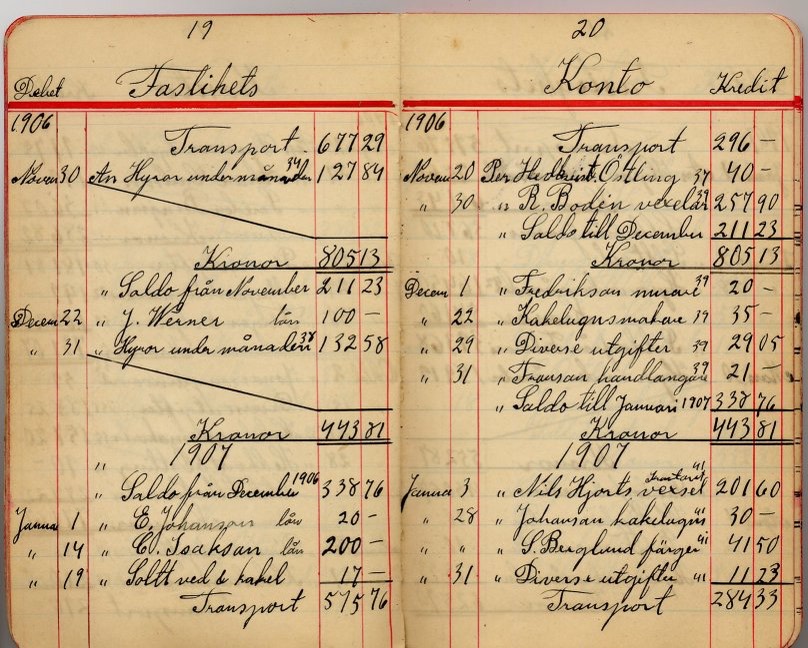 19
Debet Fastihets
1906
Transport 677 29
Novem 30 An Hyror under månaden 37 127 84
Kronor 805 13
" Saldo från November 211 23
Decem 22 " J. Werner lån 100 –
" 31 " Hyror under månaden 38 132 58
Kronor 443 81
" 1907
" Saldo från December 1906 338 76
Janua 1 " E. Johanson lån 20 –
" 14 " C. Isaksan lån 200 –
" 19 " Soltt ved & kakel 17 –
Transport 575 76
20
Konto Kredit
1906
Transport 296 –
Novem 20 Per Hedkvist, Östling 37 40 –
" 30 " R. Bodén vexelar 39 257 90
" Saldo till December 211 23
Kronor 805 13
Decem 1 " Fredriksan murare 39 20 –
" 22 " Kakelugnsmakare 39 35 –
" 29 " Diverse utgifter 39 29 05
" 31 " Fransan handlangare 39 21 –
" Saldo till Januari 1907 338 76
Kronor 443 81
1907
Janua 3 " Nils Hjorts vexsel 41 201 60
" 28 " Johansan kakelugns 41 30 –
" " " S. Berglund färger 41 41 50
" 31 " Diverse utgifter 41 11 23
Transport 284 33